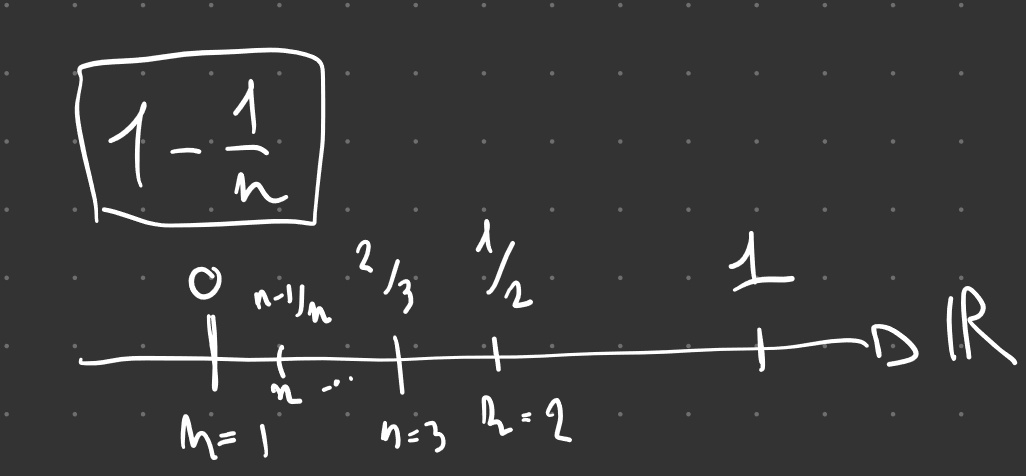 1 - 1/n
0 n-1/n 2/3 1/2 1
n ...
n = 1 n = 3 n = 2 ℝ